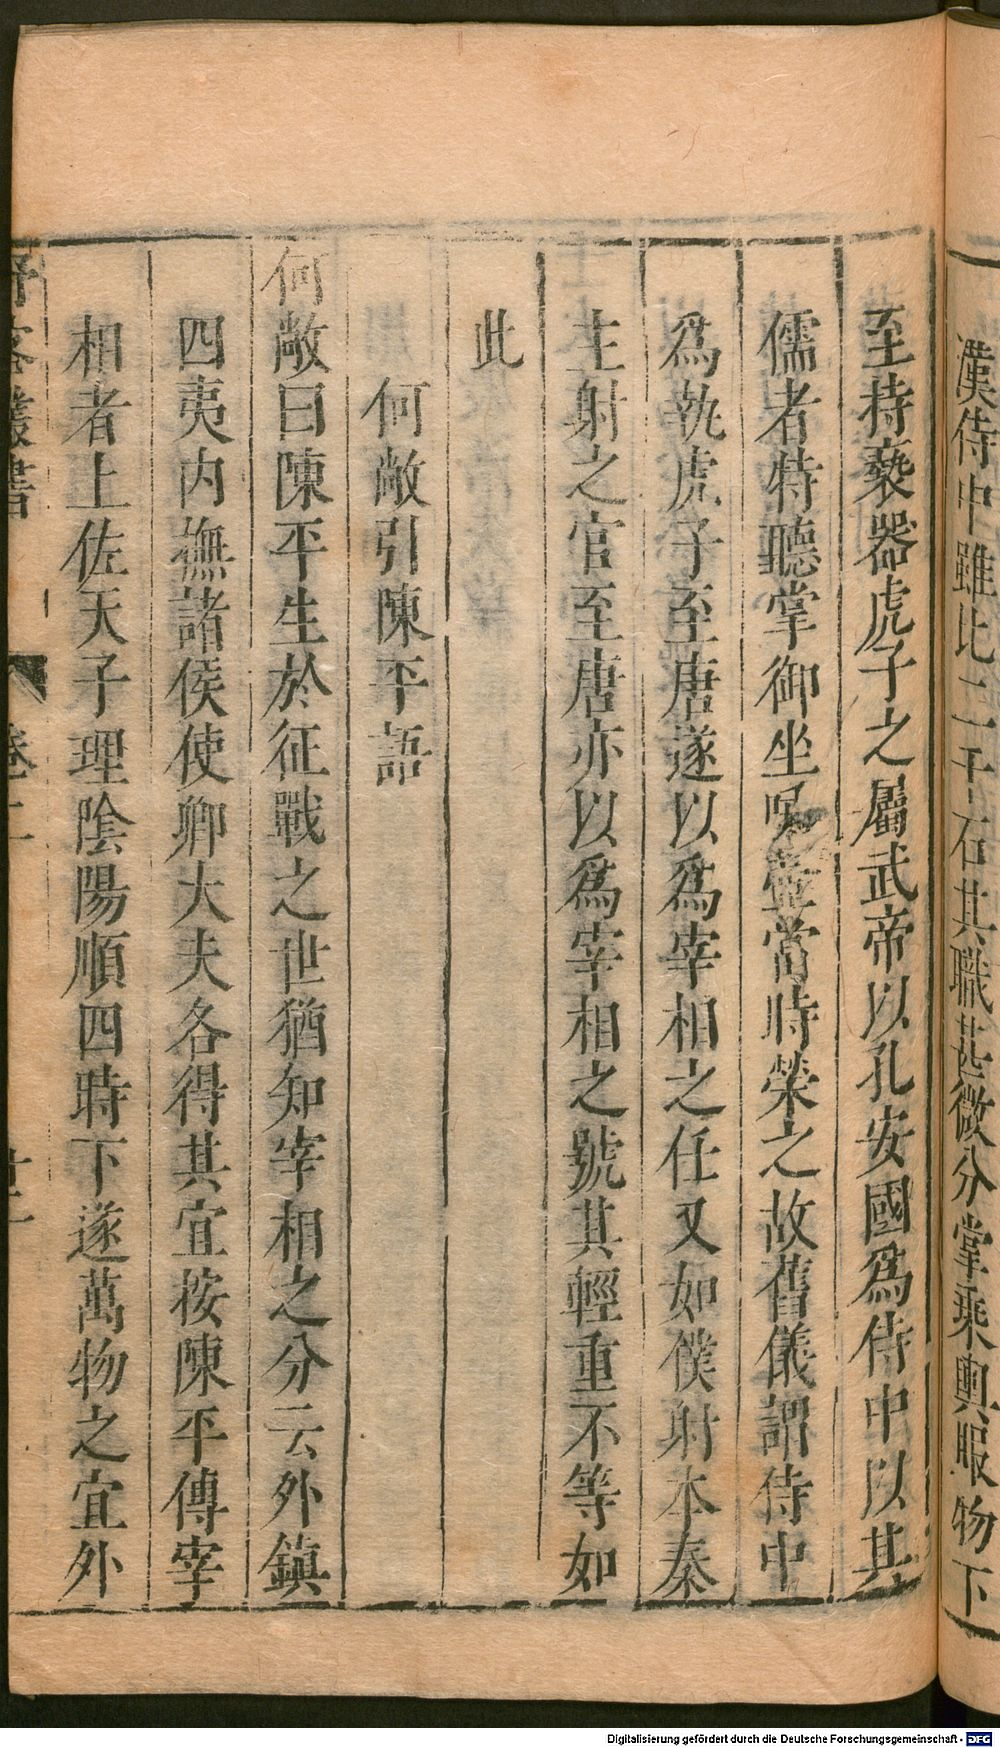 漢侍中雖比二千石其職甚微分掌乘輿服物下
至持䙝器虎子之屬武帝以孔安國爲侍中以其
儒者特聽掌御坐唾壺當時榮之故舊儀謂侍中
爲執虎子至唐遂以爲宰相之任又如僕射本秦
主射之官至唐亦以爲宰相之號其輕重不等如
此
何敞引陳平語
何敞曰陳平生於征戰之世猶知宰相之分云外鎭
四夷内撫諸侯使卿大夫各得其宜按陳平傳宰
相者上佐天子理陰陽順四時下遂萬物之宜外
野客叢書
卷二
Digitalisierung gefördert durch die Deutsche Forschungsgemeinschaft - DFG